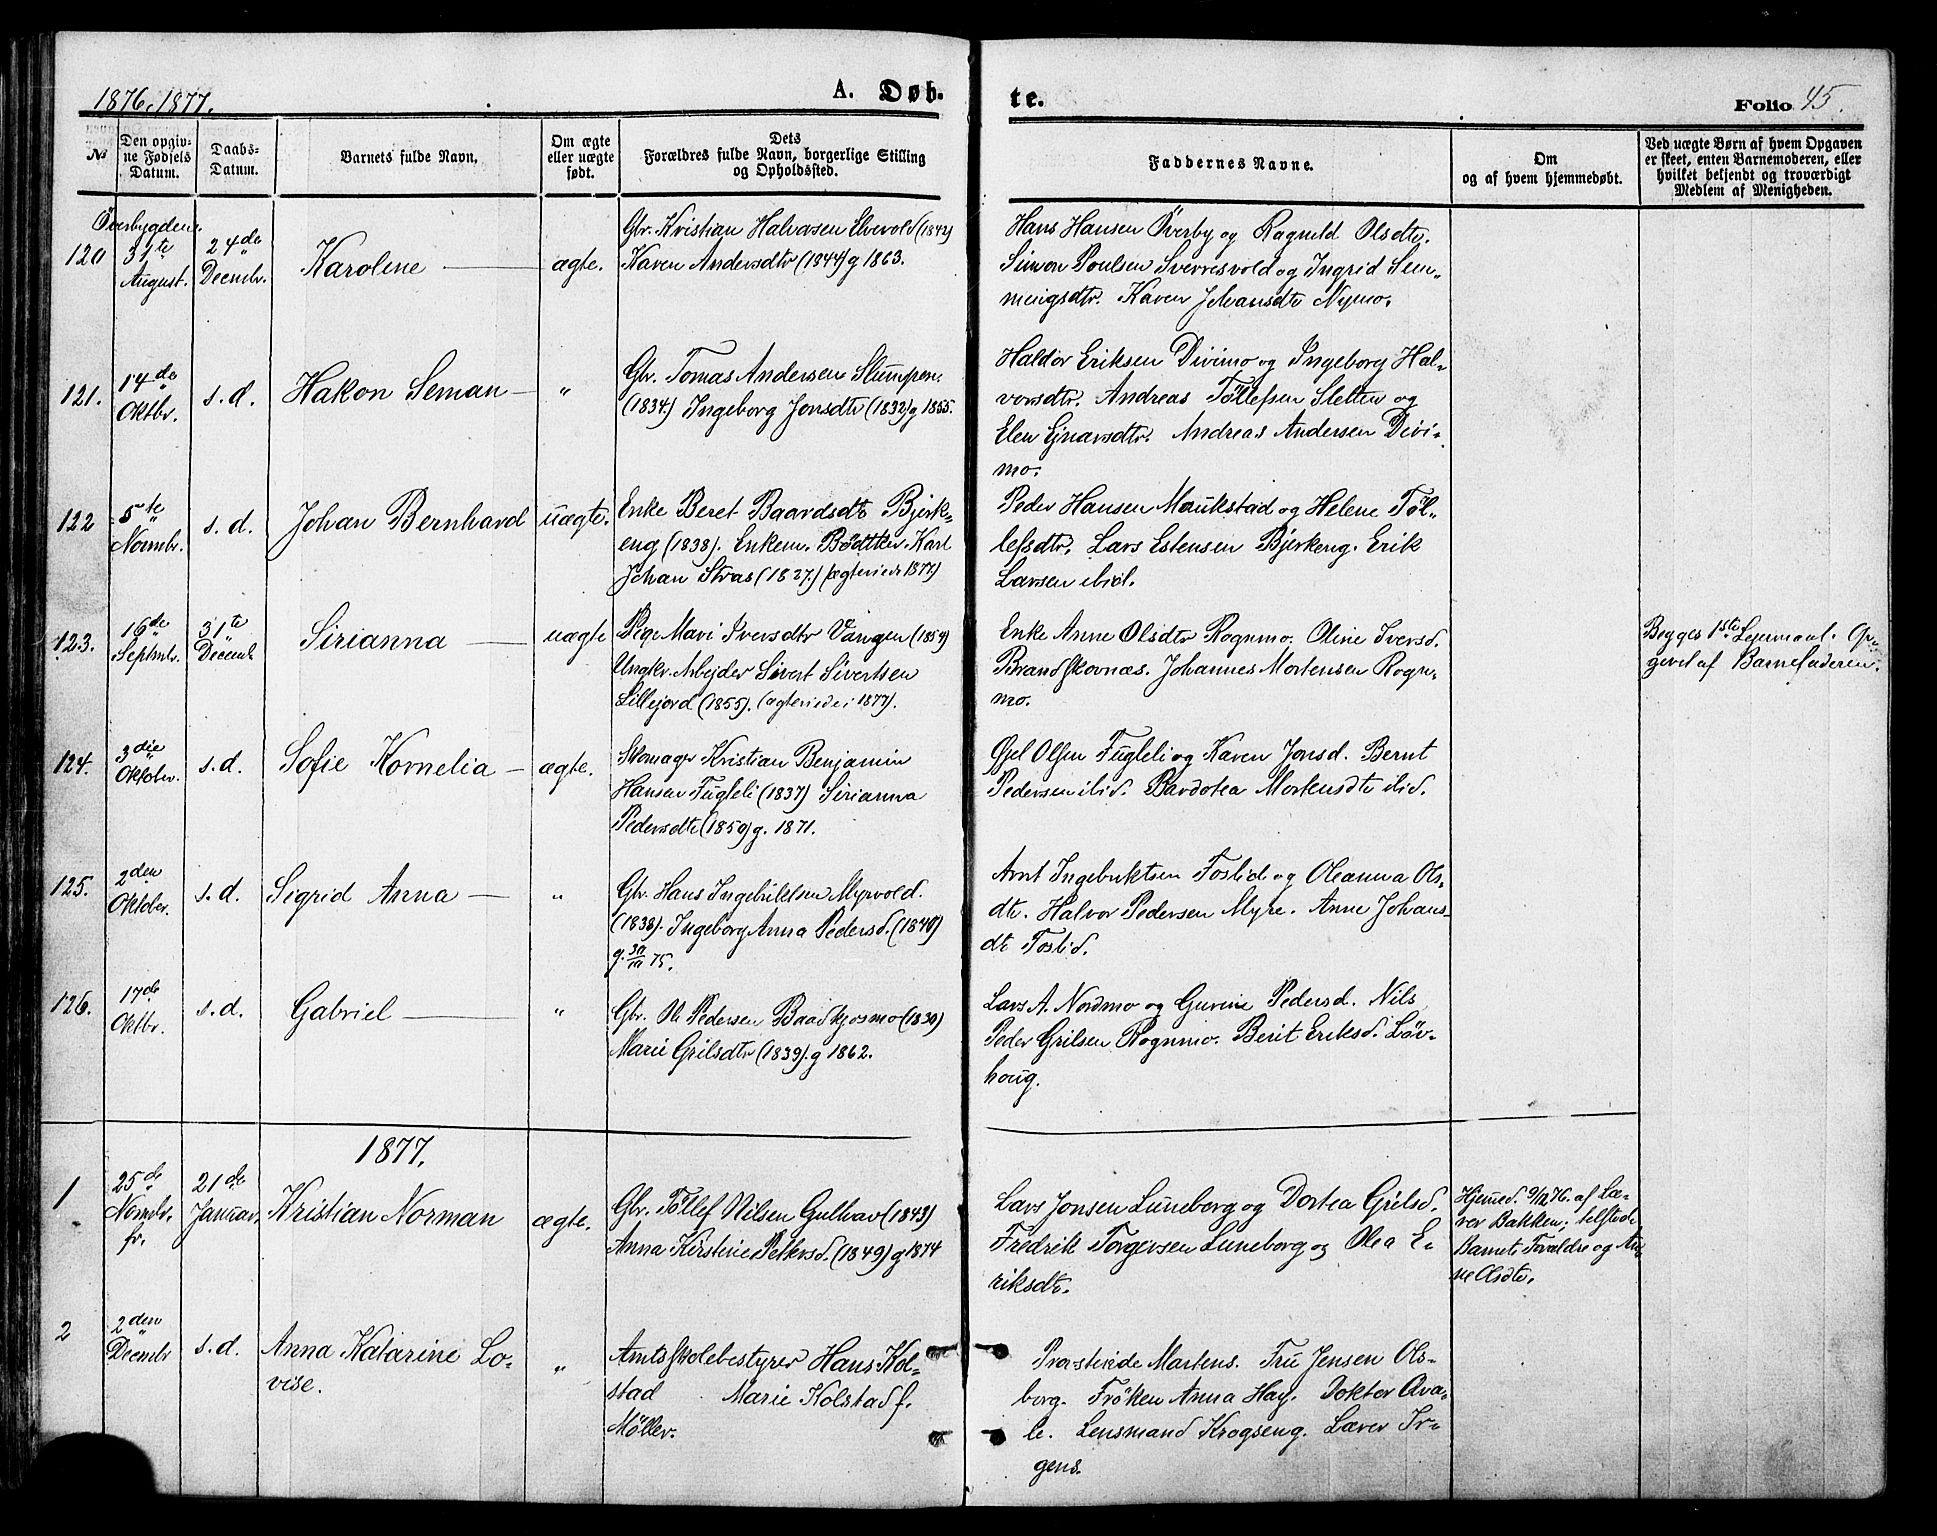 1876, 1877.
A. Døb-
te.
Folio 45.
№
Den opgiv-
ne Fødsels
Datum.
Daabs-
Datum.
Barnets fulde Navn.
Om ægte
eller uægte
født.
Dets
Forældres fulde Navn, borgerlige Stilling
og Opholdssted.
Faddernes Navne.
Om
og af hvem hjemmedøbt.
Ved uægte Børn af hvem Opgaven
er skeet, enten Barnemoderen, eller
hvilket bekjendt og troværdigt
Medlem af Menigheden.
Överbygden.
120
31te
August.
24de
Decmbr.
Karoline
ægte.
Gbr. Kristian Halvorsen Elvevold (1842)
Karen Andersdtr (1844) g 1863.
Hans Hansen Överby og Ragnild Olsdtr.
Simon Poulsen Sverresvold og Ingrid Sem-
mingsdtr. Karen Johansdtr Nymo.
121.
14de
Oktbr.
s.d.
Hakon Seman
"
Gbr. Tomas Andersen Slumpen.
(1834.) Ingeborg Jonsdtr (1832) g 1855.
Haldor Eriksen Divimo og Ingeborg Hal-
vorsdtr. Andreas Töllefsen Sletten og
Elen Ejnarsdtr. Andreas Andersen Divi-
mo.
122
5te
Novmbr.
s.d.
Johan Bernhard
uægte.
Enke Beret Baardsdtr Bjerk-
eng (1838). Enkem. Bödtker Karl
Johan Stras (1827.) (ægteviede 1877)
Peder Hansen Maukstad og Helene Töl-
lefsdtr. Lars Estensen Bjerkeng. Erik
Larsen ibid.
123.
16de
Septmbr.
31te
Decmb
Sirianna
uægte
Pige Mari Iversdtr Vangen (1859)
Ungkr. Arbejder Sivert Sivertsen
Lillejord (1855). (ægteviede i 1877).
Enke Anne Olsdtr Rognmo. Oline Iversd.
Brandskovnæs. Johannes Mortensen Rogn-
mo.
Begges 1ste Lejermaal. Op-
givet af Barnefaderen.
124.
3die
Oktober.
s.d.
Sofie Kornelia
ægte.
Skomager Kristian Benjamin
Hansen Fugleli (1837) Sirianna
Pedersdtr (1850) g. 1871.
Ejel Olsen Fugleli og Karen Jonsd. Bernt
Pedersen ibid. Bardotea Mortensdtr ibid.
125.
2den
Oktober.
s.d.
Sigrid Anna
"
Gbr. Hans Ingebriktsen Myrvold.
(1838). Ingeborg Anna Pedersd. (1840)
g. 30/10 75.
Arnt Ingebriktsen Foslid og Oleanna Ols-
dtr. Halvor Pedersen Myre. Anne Johans-
dtr Foslid.
126.
17de
Oktbr.
s.d.
Gabriel
"
Gbr. Ole Pedersen Baadskjosmo (1830)
Marie Grilsdtr (1839). g 1862.
Lars A. Nordmo og Gurine Pedersd. Nils
Peder Grilsen Rognmo. Berit Eriksd. Löv-
houg.
1877.
1
25de
Novmbr.
fr.
21de
Januar.
Kristian Norman
ægte.
Gbr. Töllef Nilsen Gulhav (1843)
Anna Kirstine Petersd. (1849) g 1874
Lars Jonsen Luneborg og Dortea Grilsd.
Fredrik Torgersen Luneborg og Olea E-
riksdtr.
Hjemmed. 9/12 76. af Læ-
rer Bakken; tilstede
Barnets Forældre og An-
ne Olsdtr.
2
2den
Decmbr
s.d.
Anna Katarine Lo-
vise.
"
Amtsskolebestyrer Hans Kol-
stad Marie Kolstad f.
Möller.
Provstinde Martens. Fru Jensen Ols-
borg. Fröken Anna Hay. Doktor Qva-
le. Lensmand Krogseng. Lærer Ir-
gens.